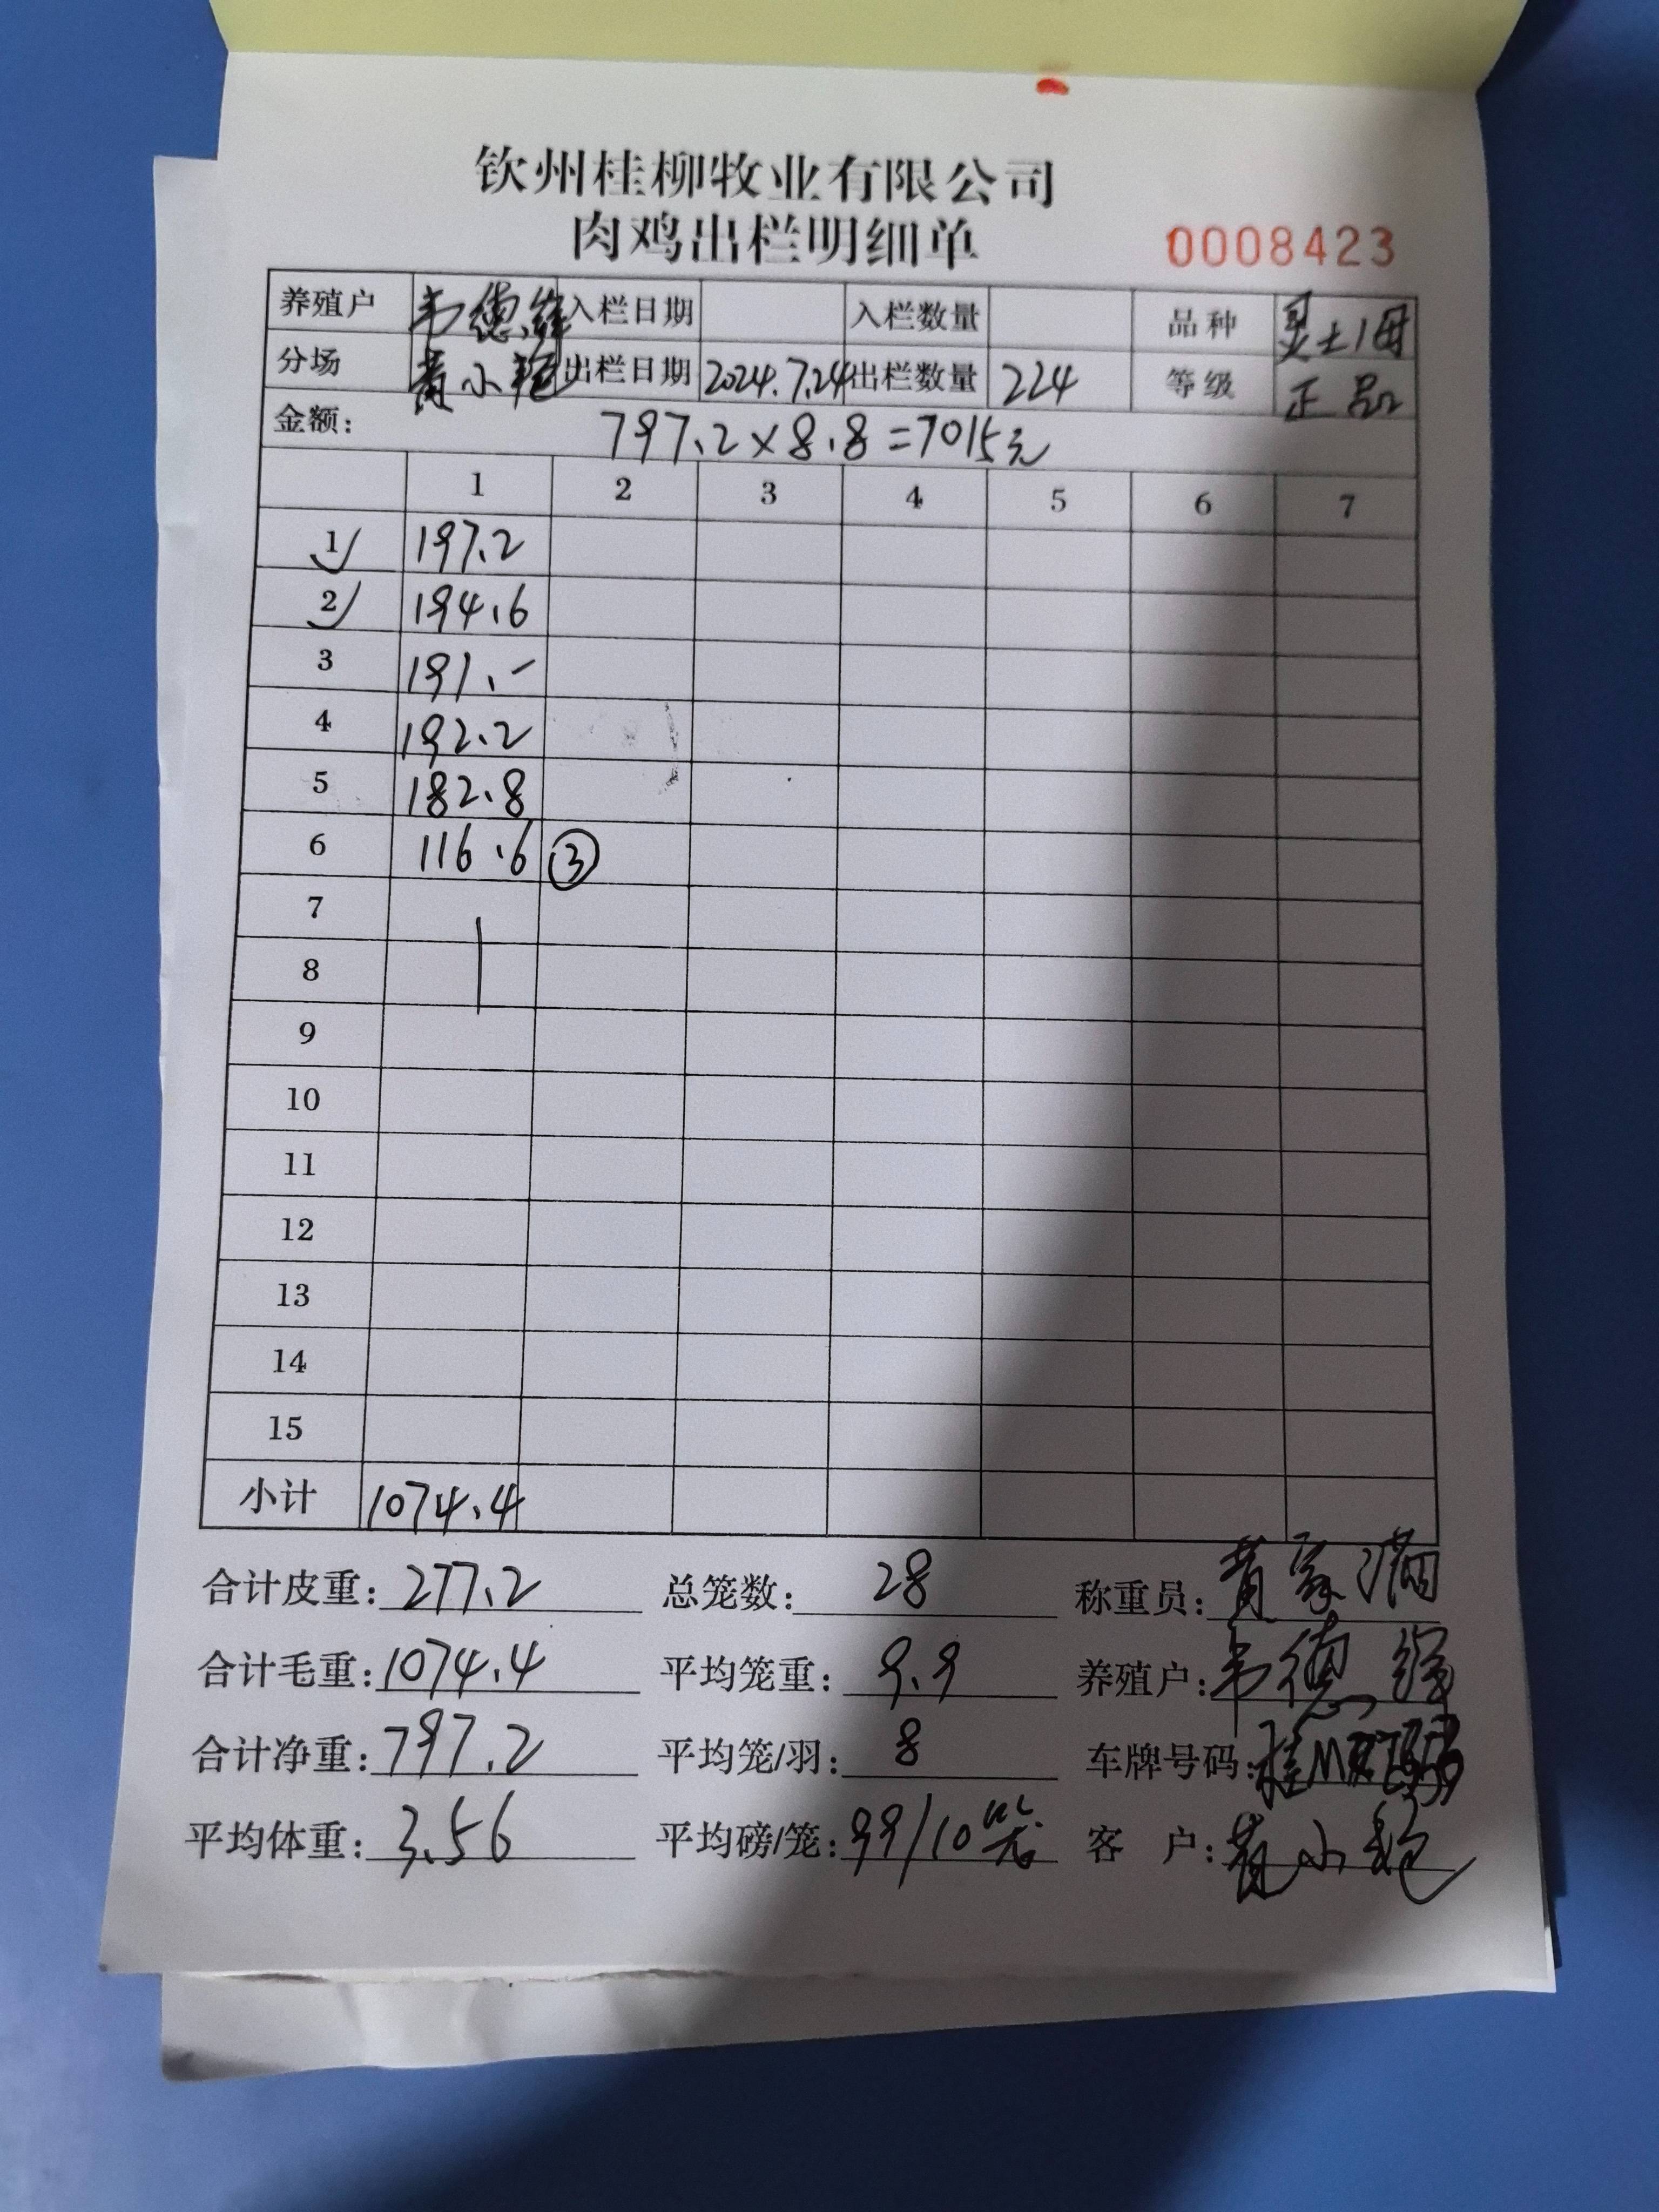 钦州桂柳牧业有限公司
肉鸡出栏明细单
0008423
养殖户 韦德维 入栏日期 入栏数量 品种 灵土1母
分场 黄小艳 出栏日期 2024.7.24 出栏数量 224 等级 正品
金额: 797.2×8.8=7015元
1 2 3 4 5 6 7
1 197.2
2 194.6
3 191.-
4 192.2
5 182.8
6 116.6 ③
7
8
9
10
11
12
13
14
15
小计 1074.4
合计皮重: 277.2 总笼数: 28 称重员: 黄家满
合计毛重: 1074.4 平均笼重: 9.9 养殖户: 韦德维
合计净重: 797.2 平均笼/羽: 8 车牌号码: 桂M
平均体重: 3.56 平均磅/笼: 99/10笼 客户: 黄小艳